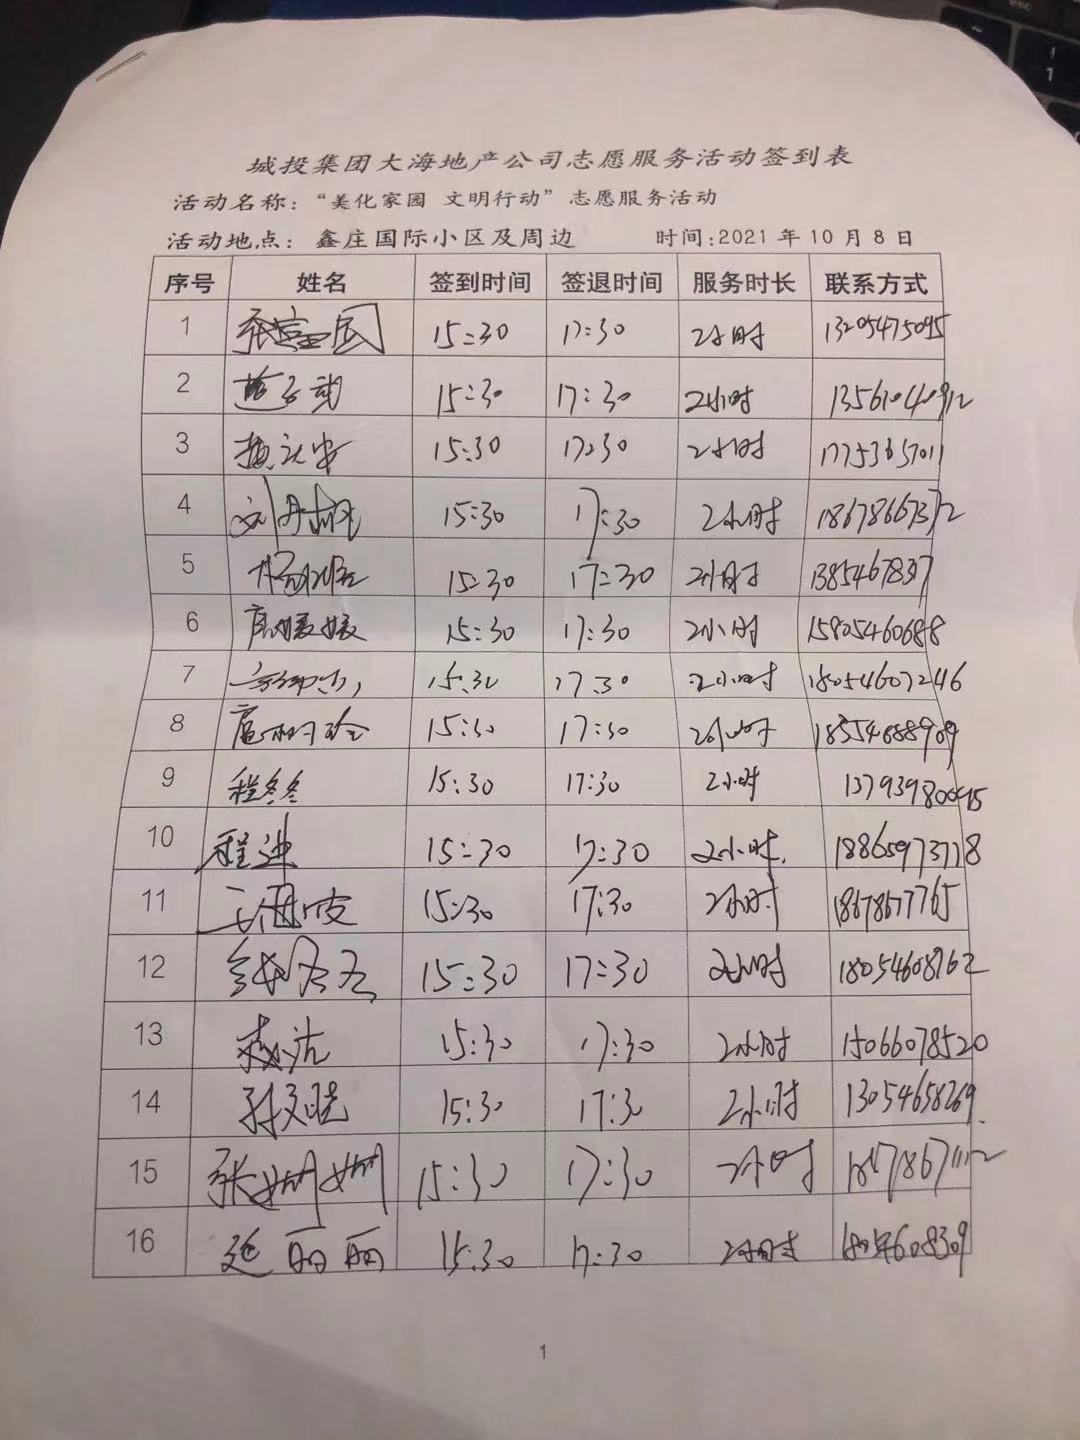 城投集团大海地产公司志愿服务活动签到表
活动名称：“美化家园 文明行动”志愿服务活动
活动地点：鑫庄国际小区及周边 时间:2021年10月8日
序号 姓名 签到时间 签退时间 服务时长 联系方式
1 15:30 17:30 2小时 13205475095
2 15:30 17:30 2小时 13561040912
3 15:30 17:30 2小时 17753657011
4 15:30 17:30 2小时 18678667372
5 15:30 17:30 2小时
6 高媛媛 15:30 17:30 2小时 15805460688
7 15:30 17:30 2小时 18054607246
8 15:30 17:30 2小时 18354688909
9 程冬冬 15:30 17:30 2小时 13793980095
10 程迪 15:30 17:30 2小时 18865973778
11 15:30 17:30 2小时 18678677765
12 15:30 17:30 2小时 18054608762
13 15:30 17:30 2小时 15066078520
14 孙文晓 15:30 17:30 2小时 13054658269
15 张姗姗 15:30 17:30 2小时
16 延丽丽 15:30 17:30 2小时 18054608309
1